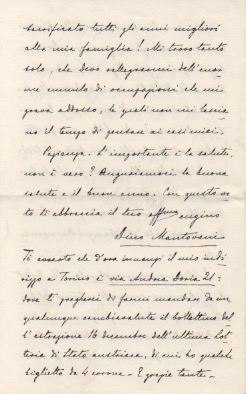 sacrificato tutti gli anni migliori
alla mia famiglia! Mi trovo tanto
solo, che devo rallegrarmi dell'enor
me cumulo di occupazioni che mi
grava addosso, le quali non mi lascia
no il tempo di pensare ai casi miei.
Pazienza. L'importante è la salute,
non è vero? Auguriamoci la buona
salute e il buon anno. Con questo vo
to ti abbraccia il tuo affmo cugino
Dino Mantovani
Ti avverto che d'ora innanzi il mio indi
rizzo a Torino è via Andrea Doria 21:
dove ti pregherei di farmi mandare da un
qualunque cambiavalute il bollettino del
l'estrazione 16 dicembre dell'ultima lot
teria di Stato austriaca, di cui ho qualche
biglietto da 4 corone - E grazie tante -